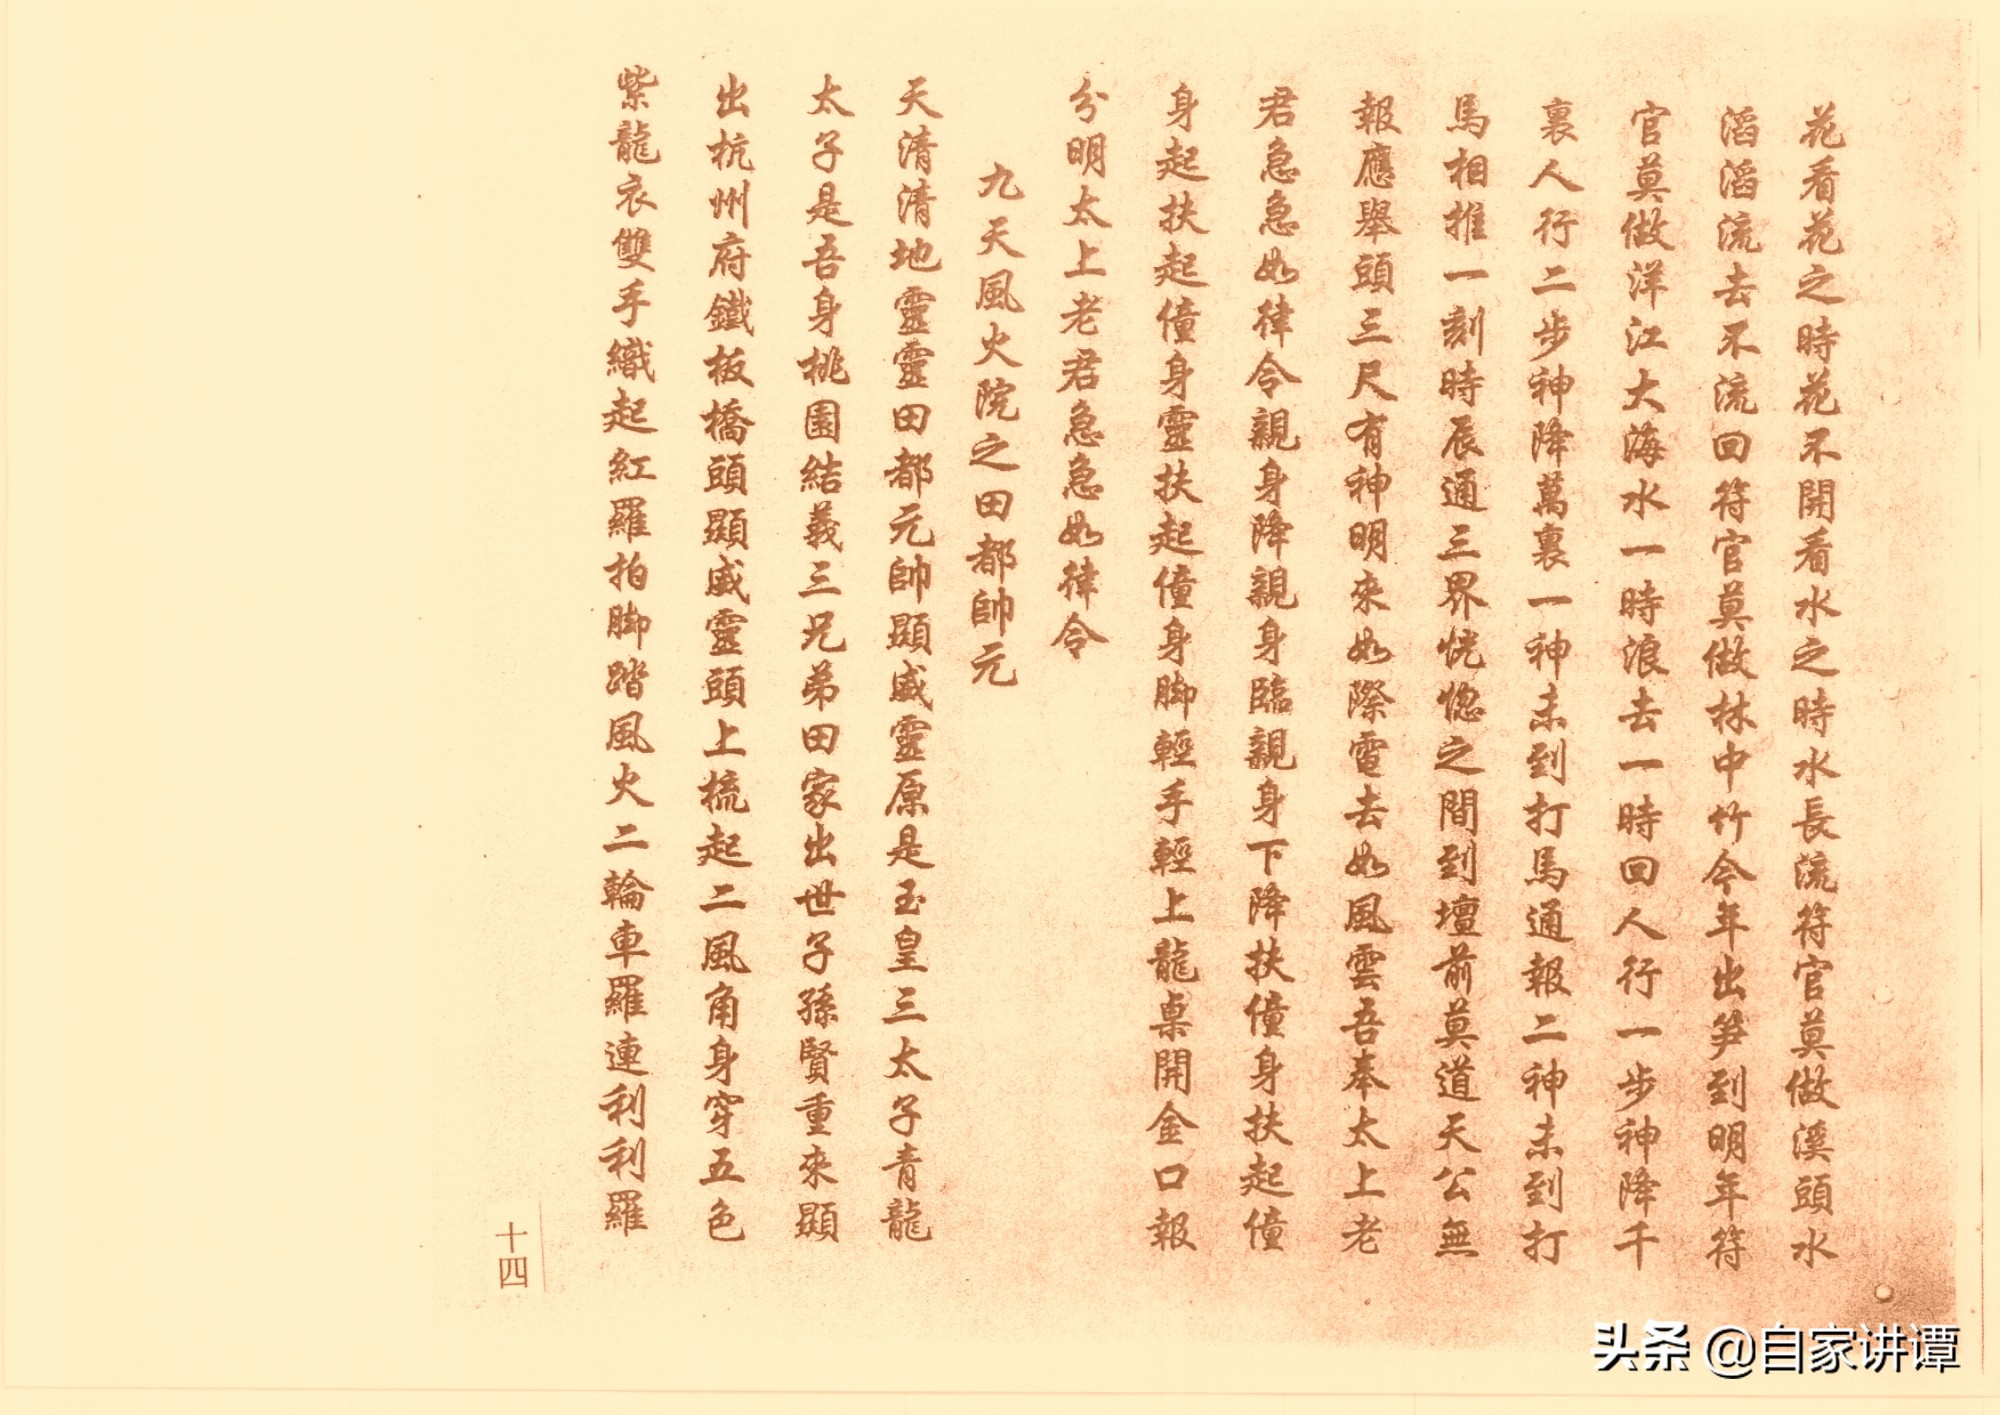 花看花之時花不開看水之時水長流符官莫做溪頭水
滔滔流去不流回符官莫做林中竹今年出笋到明年符
官莫做洋江大海水一時浪去一時回人行一步神降千
裏人行二步神降萬裏一神未到打馬通報二神未到打
馬相推一刻時辰通三界恍惚之間到壇前莫道天公無
報應舉頭三尺有神明來如際電去如風雲吾奉太上老
君急急如律令親身降親身臨親身下降扶僮身扶起僮
身起扶起僮身靈扶起僮身脚輕手輕上龍桌開金口報
分明太上老君急急如律令
九天風火院之田都帥元
天清清地靈靈田都元帥顯威靈原是玉皇三太子青龍
太子是吾身桃園結義三兄弟田家出世子孫賢重來顯
出杭州府鐵板橋頭顯威靈頭上梳起二風角身穿五色
紫龍衣雙手織起紅羅拍脚踏風火二輪車羅連利利羅
十四
头条 @自家讲谭